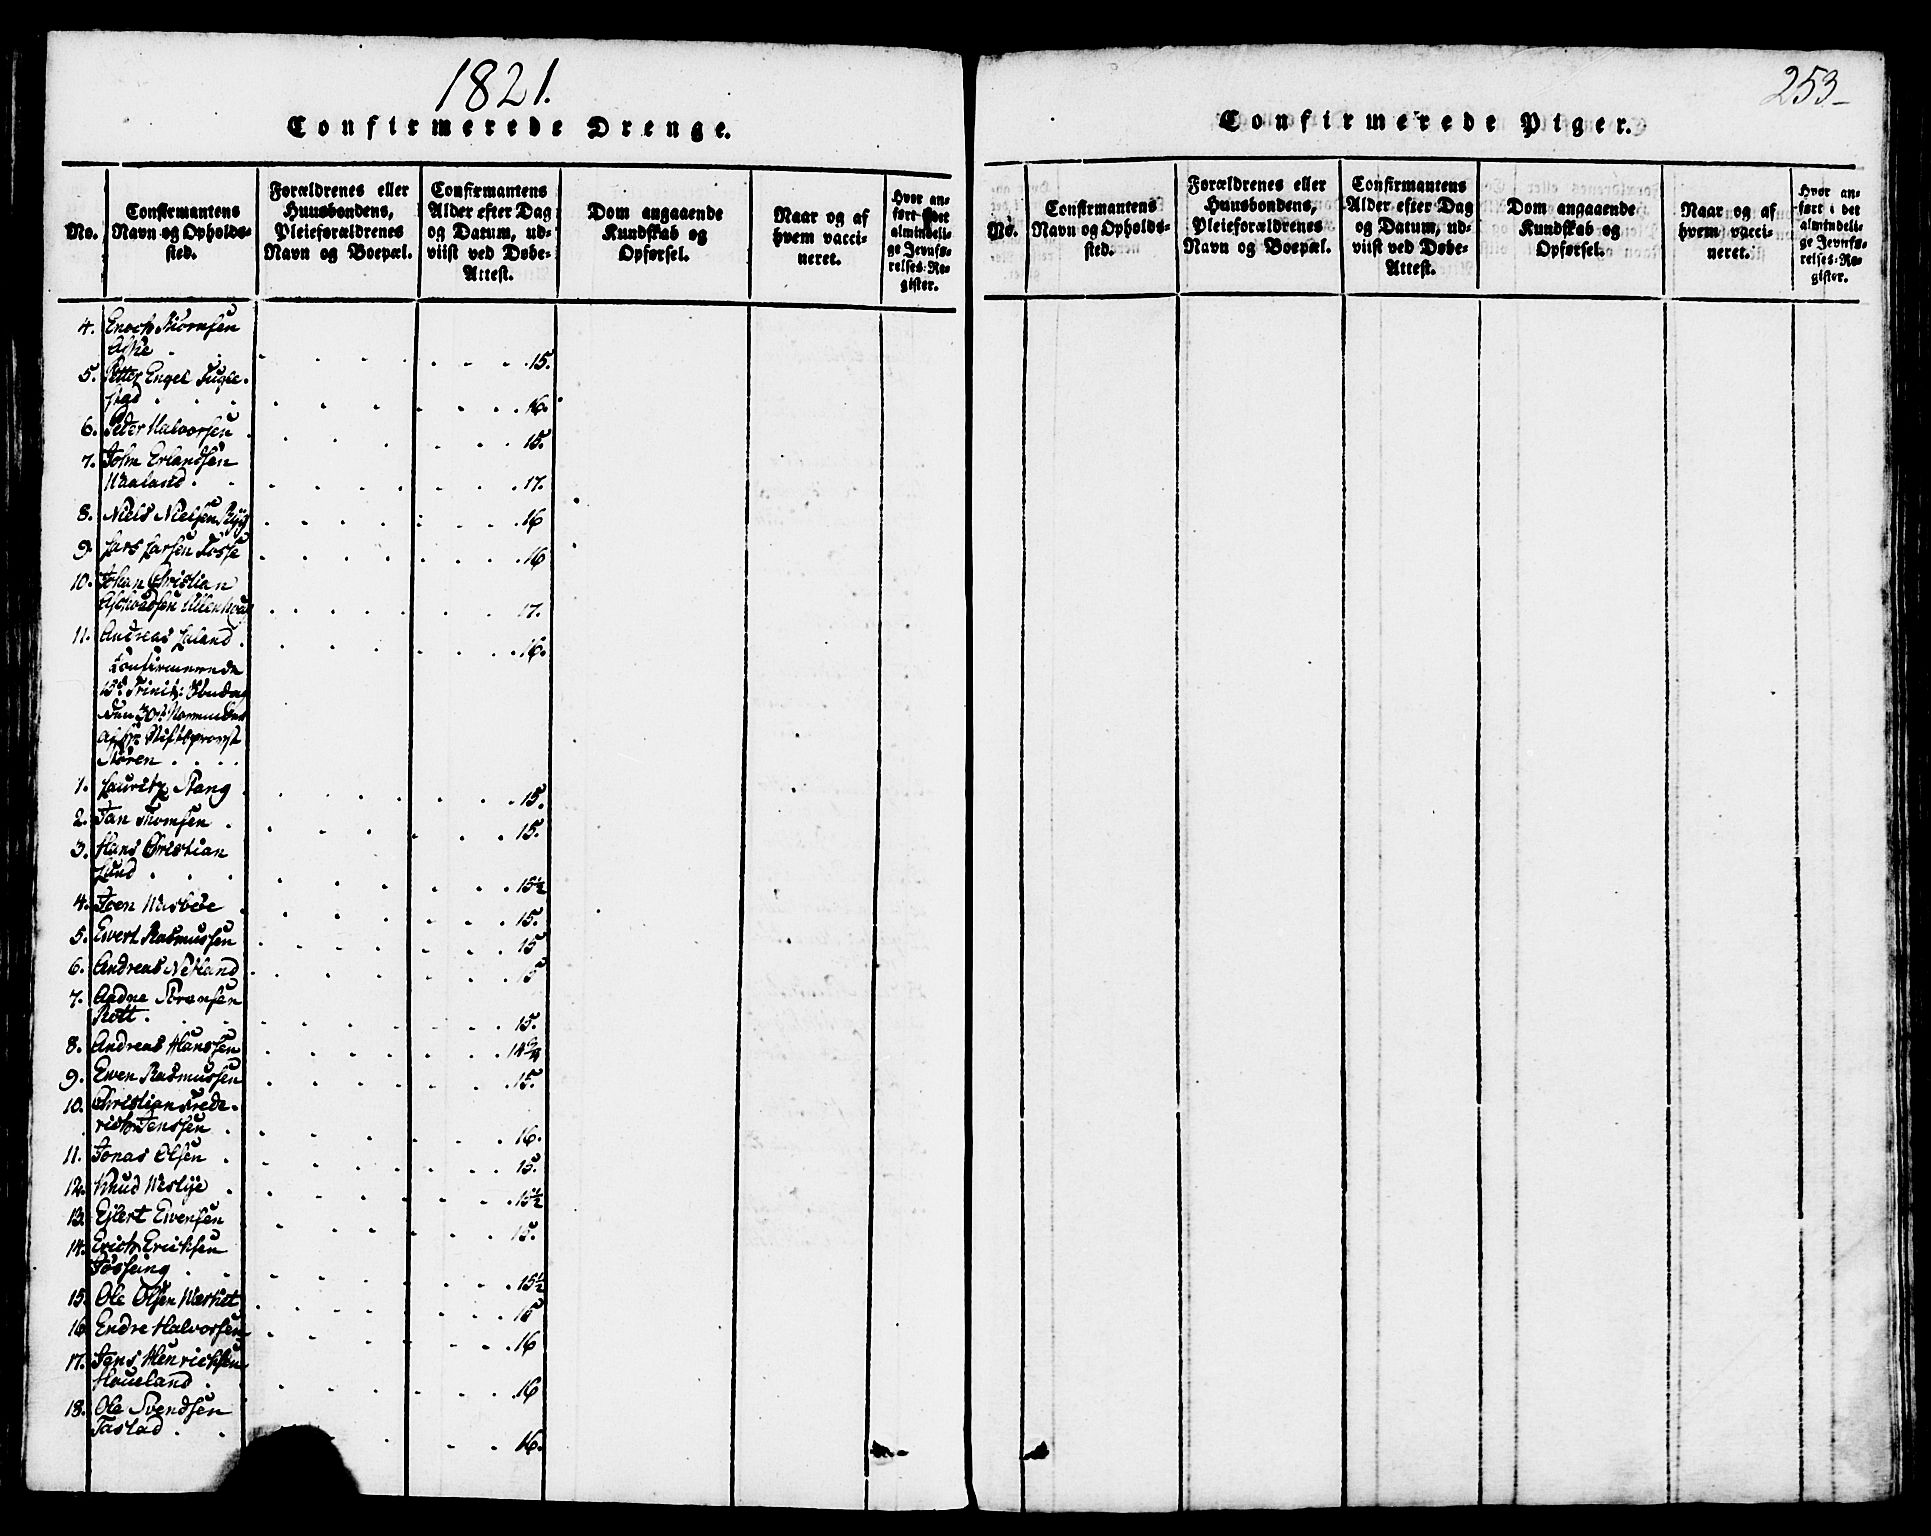 1821.
Confirmerede Drenge.
No.
Confirmantens
Navn og Opholds-
sted.
Forældrenes eller
Huusbondens,
Pleieforældrenes
Navn og Boepæl.
Confirmantens
Alder efter Dag
og Datum, ud-
viist ved Døbe-
Attest.
Dom angaaende
Kundskab og
Opførsel.
Naar og af
hvem vacci-
neret.
Hvor an-
ført i det
almindeli-
ge Jevnfø-
relses-Re-
gister.
4. Enoch Thomsen
Aske . . . . 15.
5. Petter Engel Fugle-
stad . . . . 16.
6. Peder Halvorsen . . . 15.
7. John Erlandsen
Haaland . . . . 17.
8. Niels Nielsen Rÿg . . . 16
9. Lars Larsen Fosse . . . 16
10. Johan Christian
. . . 17.
11. Andreas Laland . . . 16.
Confirmerede
15de Trinit: Søndag
den 30te
af Hr: Stiftsprovst
Støren . . . .
1. Lauritz Stang . . . 15.
2. Jan Thomsen . . . 15.
3. Hans Christian
Lund . . . . 15½
4. Joen Wasbøe . . . 15.
5. Ewert Rasmussen . . . 15
6. Andreas Netland . . . 15
7. Aadne Sørensen
Rott . . . . 15.
8. Andreas Hanssen . . . 14¾
9. Ewen Rasmussen . . . 15.
10. Christian Frede-
rich Jenssen . . . 16.
11. Jonas Olsen . . . 15.
12. Knud Weslÿe . . . 15½
13. Ejlert Ewensen . . . 15.
14. Erich Ericksen
Fosseing . . . . 15½
15. Ole Olsen . . . 15
16. Endre Halvorsen . . . 16
17. Jens Henricksen
Haueland . . . . 16
18. Ole Svendsen
Tastad . . . . 16.
253-
Confirmerede Piger.
No.
Confirmantens
Navn og Opholds-
sted.
Forældrenes eller
Huusbondens,
Pleieforældrenes
Navn og Boepæl.
Confirmantens
Alder efter Dag
og Datum, ud-
viist ved Døbe-
Attest.
Dom angaaende
Kundskab og
Opførsel.
Naar og af
hvem vacci-
neret.
Hvor an-
ført i det
almindeli-
ge Jevnfø-
relses-Re-
gister.